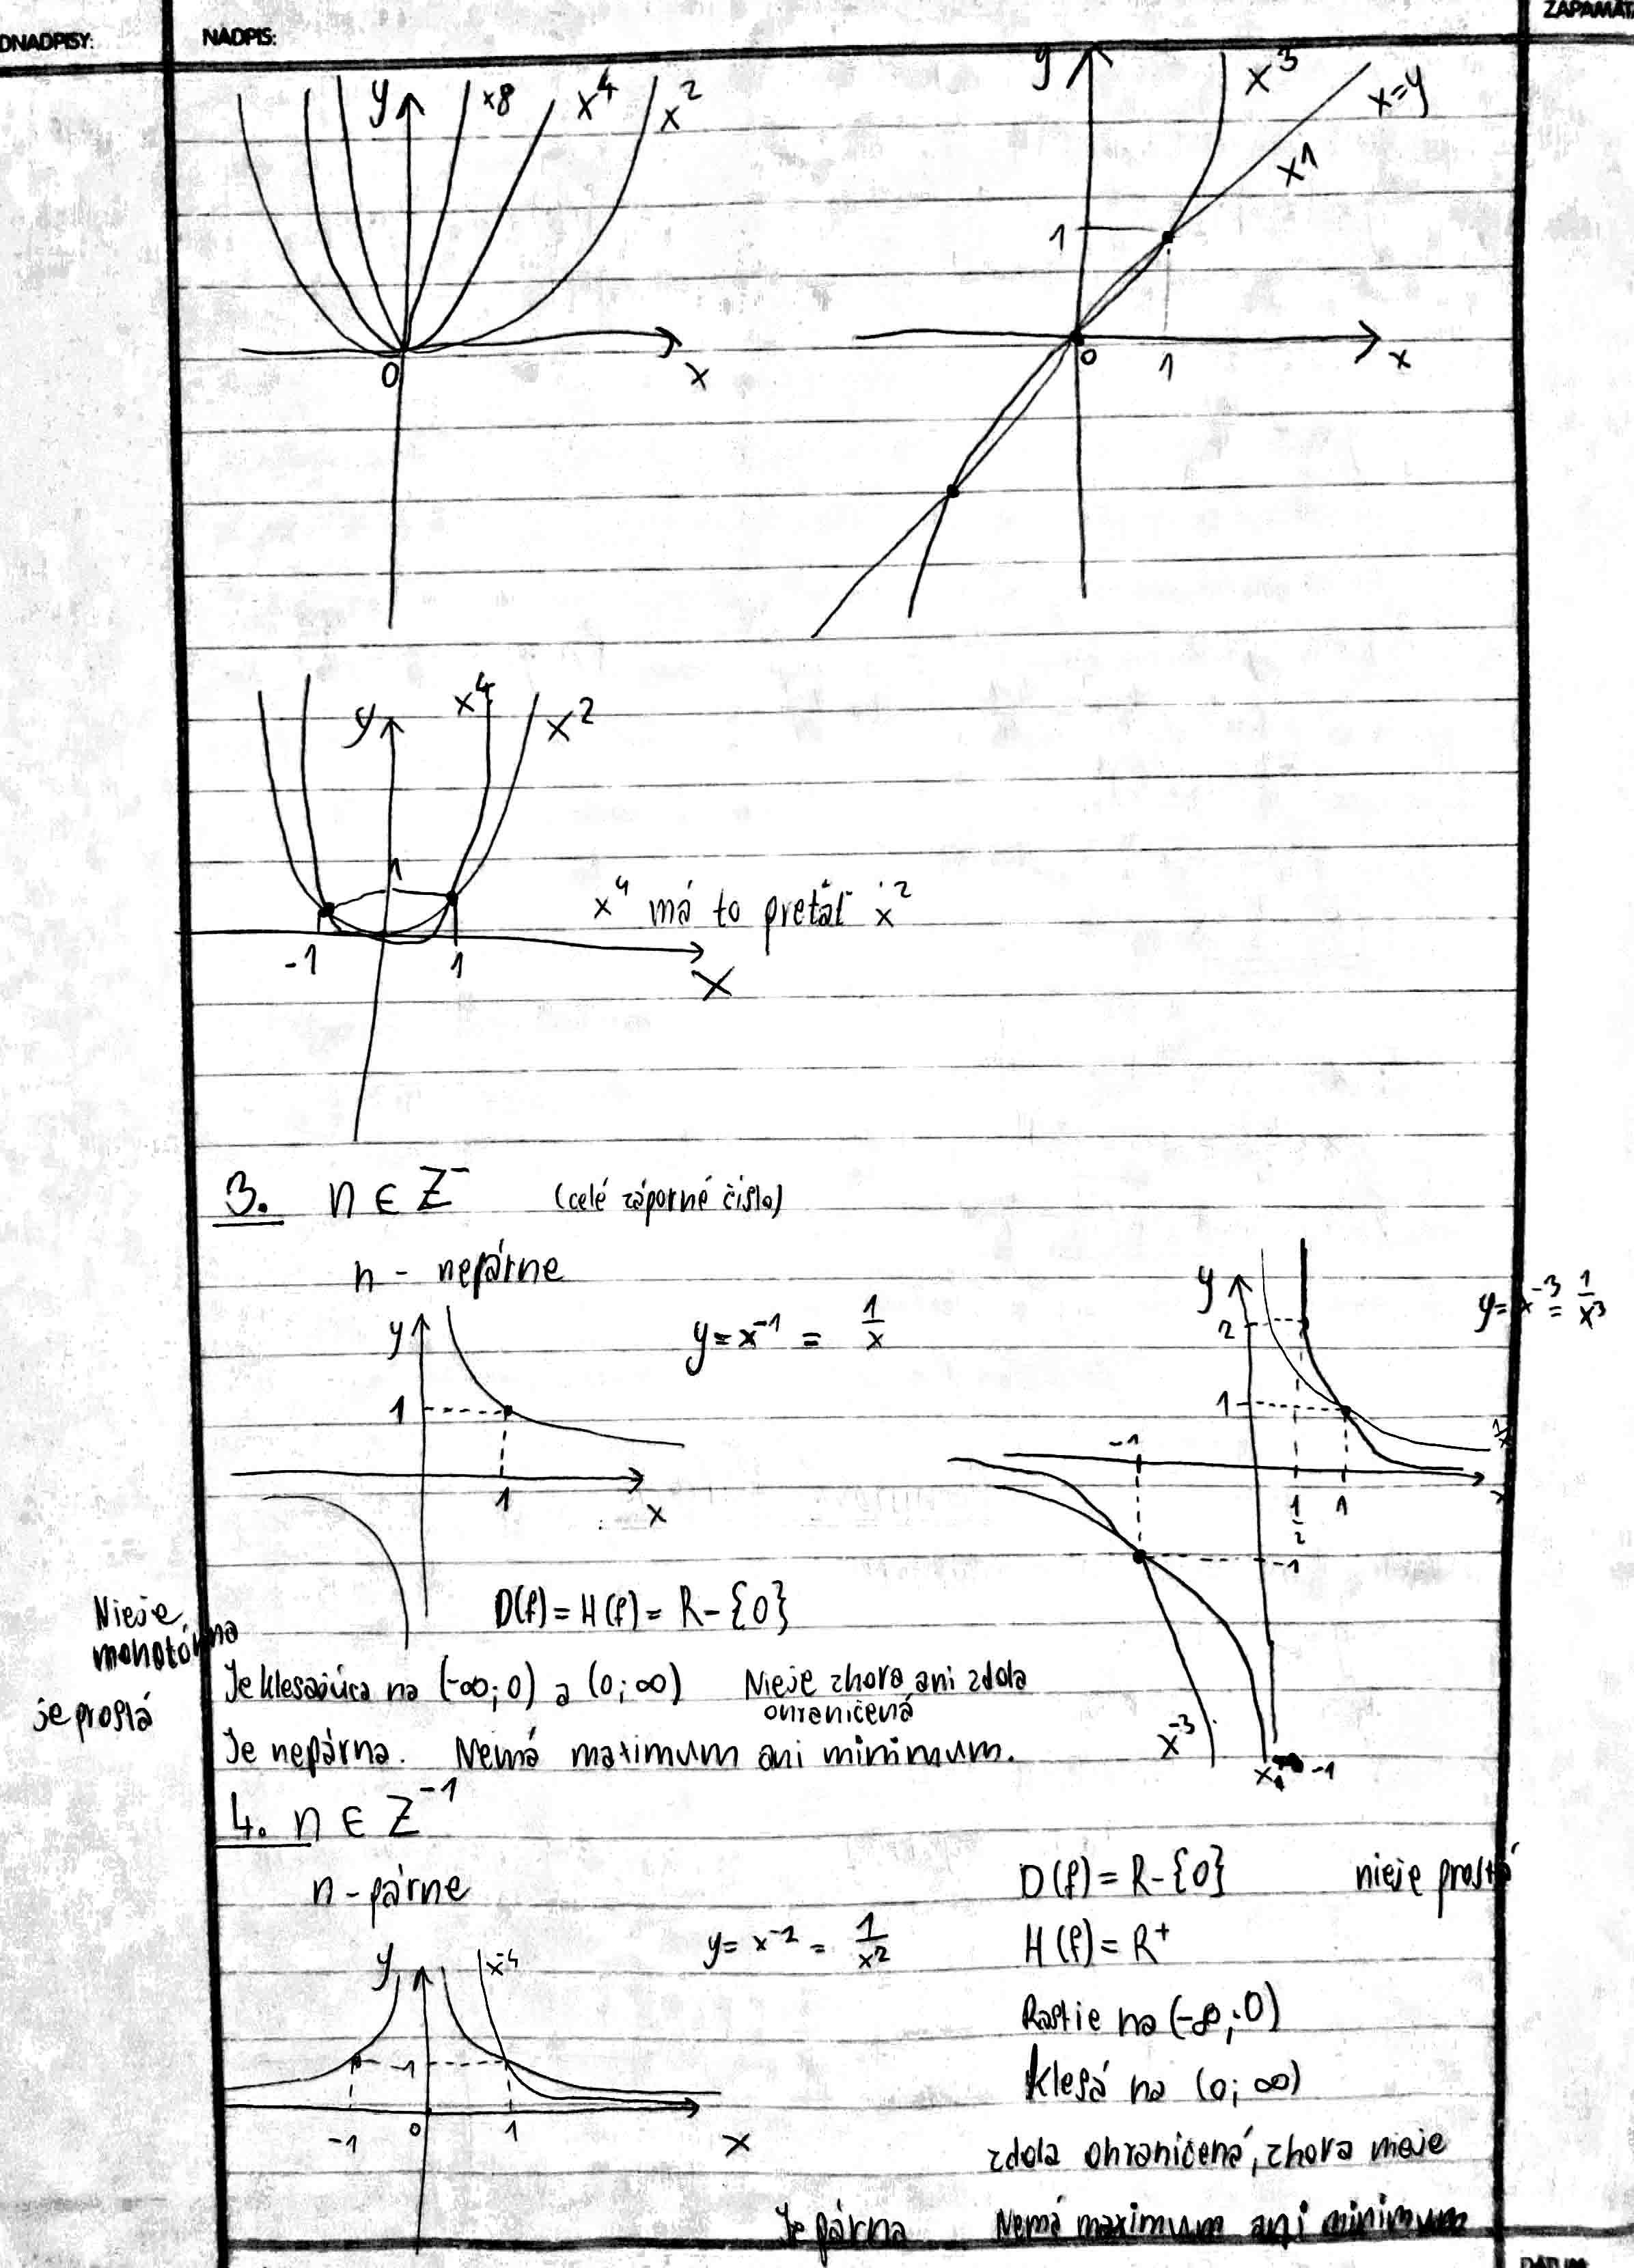 ODNADPISY:
NADPIS:
ZAPAMÄTA
y
x8
x⁴
x²
0
x
y
x³
x=y
x¹
1
0
1
x
y
x⁴
x²
1
-1
1
x
x⁴ má to pretáť x²
3. n ∈ Z⁻ (celé záporné číslo)
n - nepárne
y
1
1
x
y = x⁻¹ = 1/x
y
2
1
-1
1/2
1
x
-1
y = x⁻³ = 1/x³
1/x
x⁻³
x⁻¹
D(f) = H(f) = R - {0}
Nieje
monotónna
je prostá
Je klesajúca na (-∞; 0) a (0; ∞) Nieje zhora ani zdola
ohraničená
Je nepárna. Nemá maximum ani minimum.
4. n ∈ Z⁻¹
n - párne
y
x⁻⁴
1
-1
0
1
x
y = x⁻² = 1/x²
D(f) = R - {0} nieje prostá
H(f) = R⁺
Rastie na (-∞; 0)
klesá na (0; ∞)
zdola ohraničená, zhora nieje
Je párna Nemá maximum ani minimum
DÁTUM